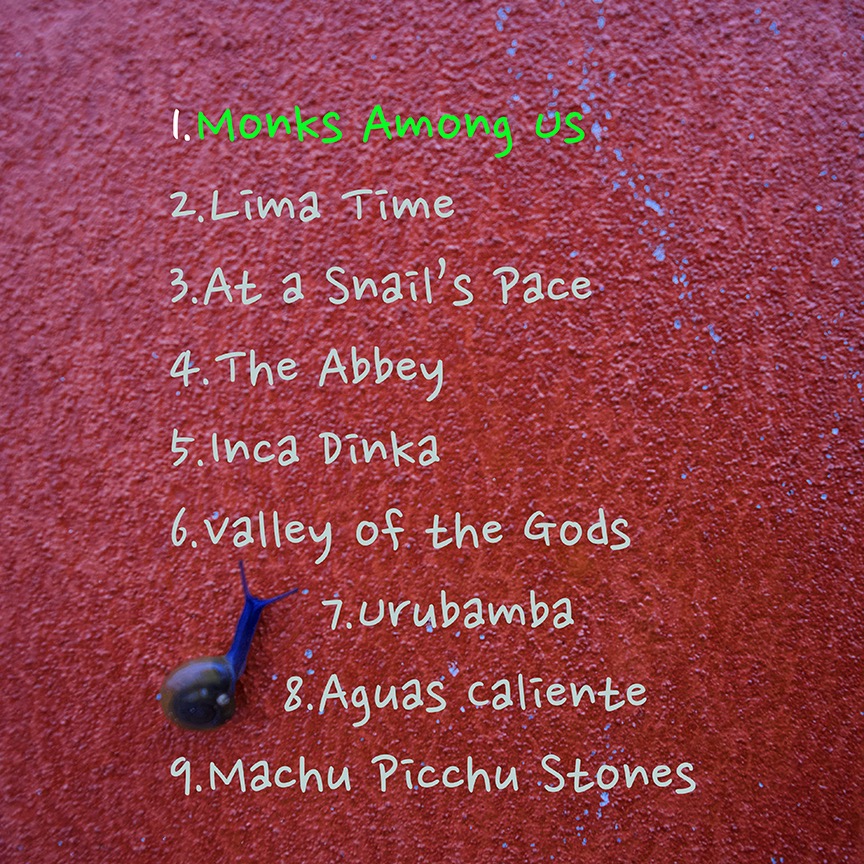 1.Monks Among us
2.Lima Time
3.At a Snail's Pace
4.The Abbey
5.Inca Dinka
6.Valley of the Gods
7.Urubamba
8.Aguas Caliente
9.Machu Picchu Stones